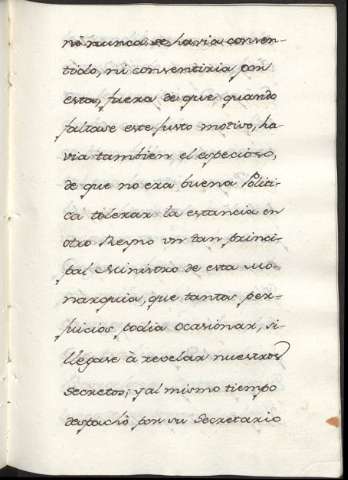 ni nunca se havia conven-
tido, ni conventiria por
esta, fuera de que quando
faltase este justo motivo, ha-
via tambien el especioso,
de que no era buena Politi-
ca tolerar la estancia en
otro Reyno un tan princi-
pal Ministro de esta Mo-
narquia, que tantos per-
juicios podia ocasionar, si
llegase à revelar nuestros
secretos; y al mismo tiempo
despachó por su Secretario